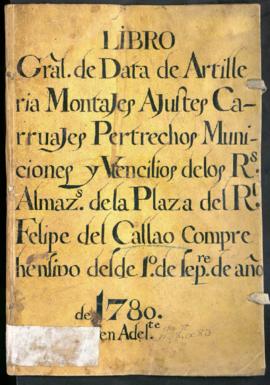 LIBRO
Gràl. de Data de Artille
ria Montajes Ajustes Ca-
rruajes Pertrechos Muni
ciones y Vencilios delos Rs.
Almazs. de la Plaza del Rl.
Felipe del Callao Compre
hensivo desde 1º. de sepre. de año
de 1780.
en Adelte